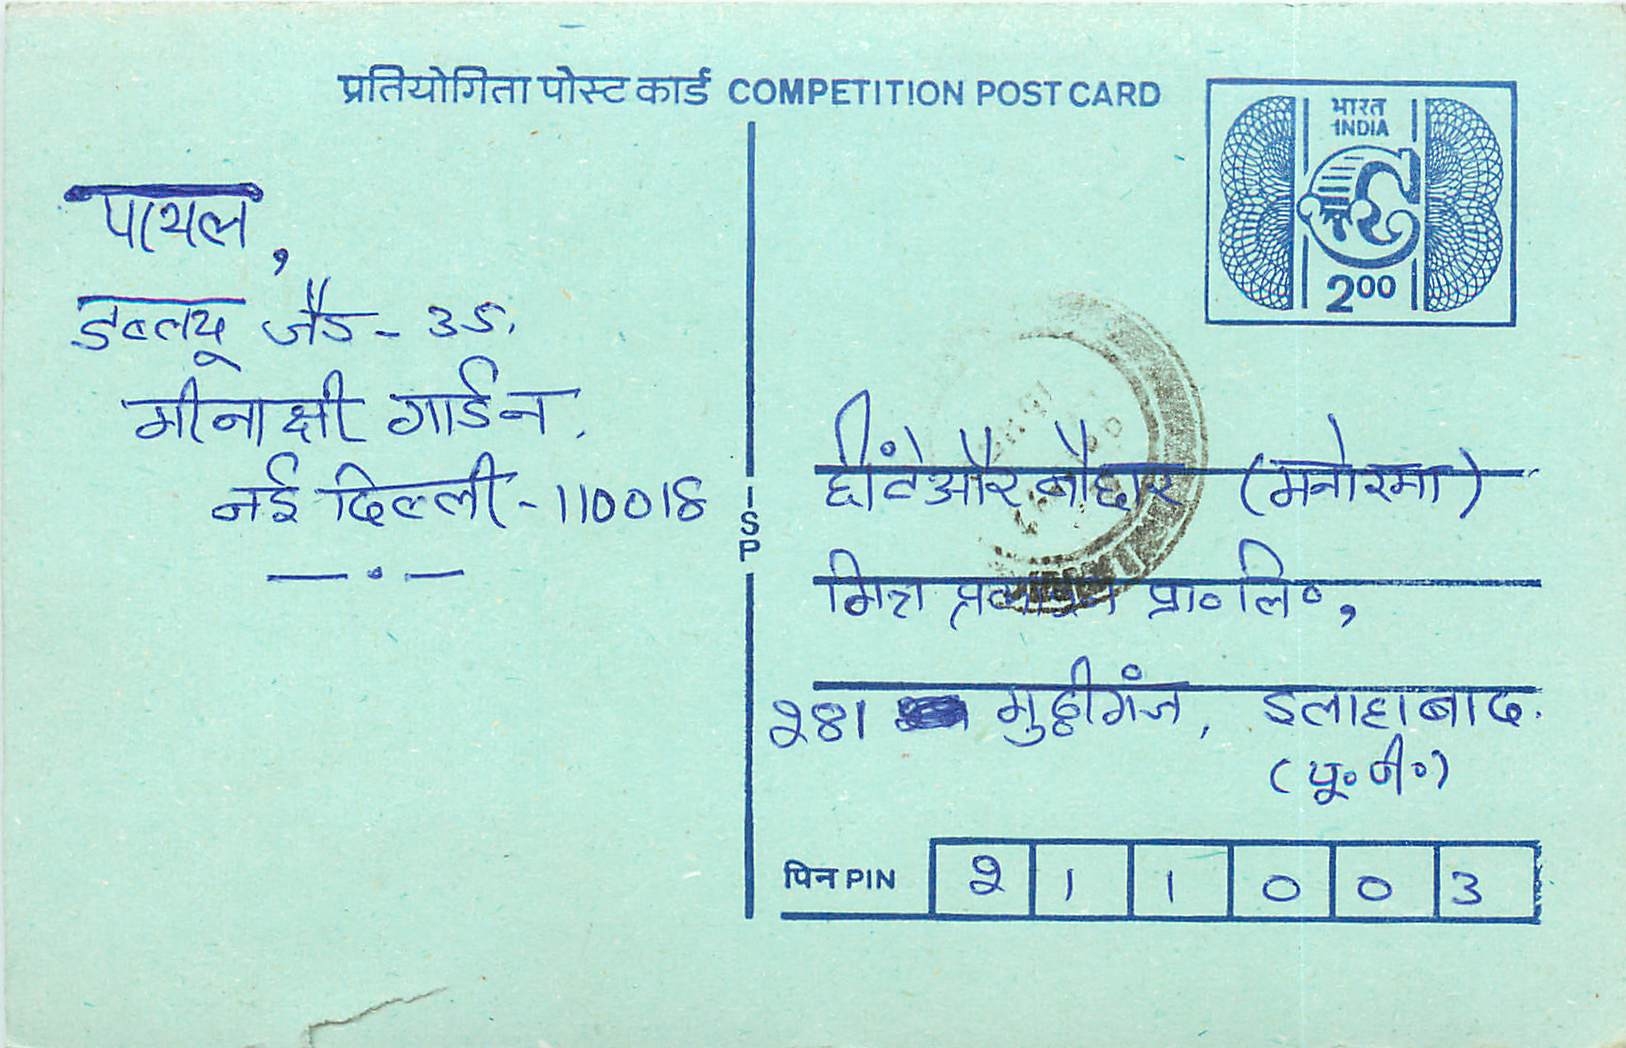 प्रतियोगिता पोस्ट कार्ड COMPETITION POST CARD
भारत
INDIA
2.00
पायल,
डब्लयू जैड - 35,
मीनाक्षी गार्डन,
नई दिल्ली - 110018
ISP
छींटे और बौछार (मनोरमा)
मित्रा प्रकाशन प्रा० लि०,
281 मुट्ठीगंज, इलाहाबाद.
(यू० पी०)
पिन PIN 2 1 1 0 0 3